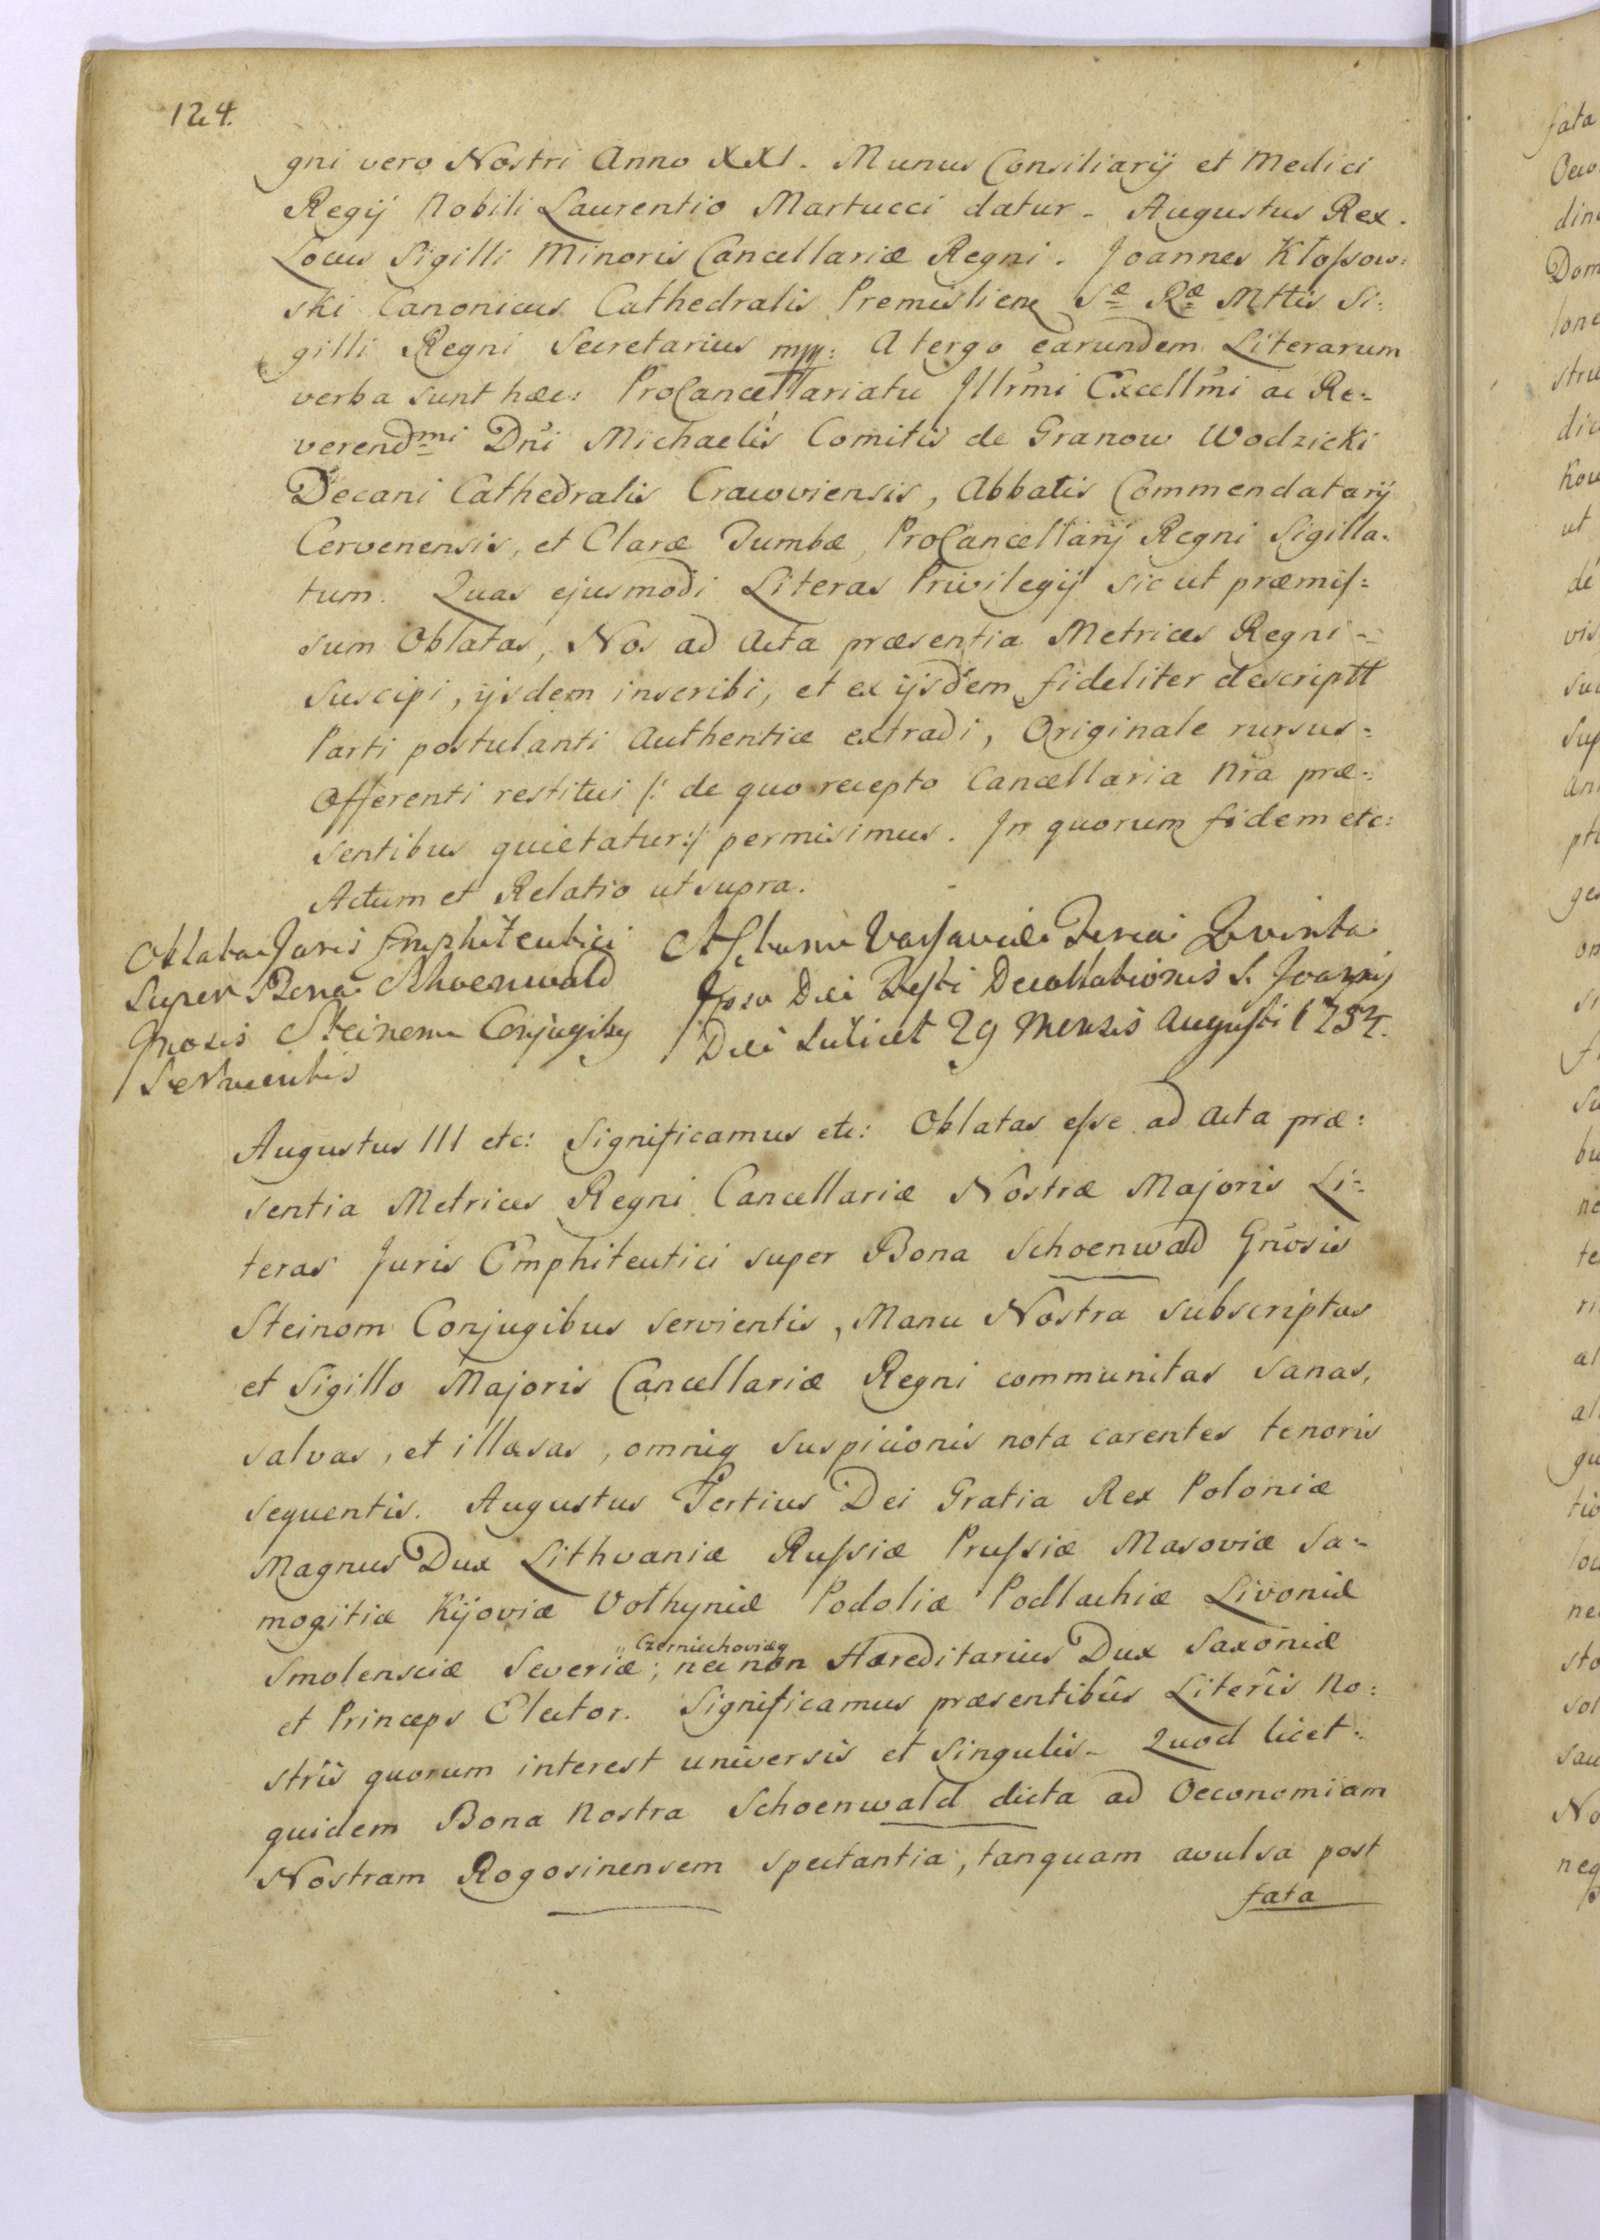 124.
gni vero Nostri Anno XXI. Munus Consiliarij et Medici
Regij Nobili Laurentio Martucci datur. Augustus Rex.
Locus Sigilli Minoris Cancellariæ Regni. Joannes Kłossow:
ski Canonicus Cathedralis Premislien Sæ Ræ Mttis Si:
gilli Regni Secretarius mpp: A tergo earundem Literarum
verba sunt hæc: ProCancellariatu Illrmi Excellmi ac Re:
verendmi Dni Michaelis Comitis de Granow Wodzicki
Decani Cathedralis Cracoviensis, Abbatis Commendatarij
Cervenensis, et Claræ Tumbæ, ProCancellarij Regni Sigilla:
tum. Quas ejusmodi Literas Privilegij sicut præmis:
sum Oblatas, Nos ad Acta præsentia Metrices Regni
Suscipi, ijsdem inscribi, et ex ijsdem fideliter descriptt
Parti postulanti Authentice extradi, Originale rursus
Offerenti restitui /: de quo recepto Cancellaria Nra præ:
sentibus quietatur :/ permisimus. In quorum fidem etc:
Actum et Relatio ut supra.
Oblata Juris Emphiteutici
Super Bona Schoenwald
Gnosis Steinom Conjugibus
Servientis
Actum Varsaviæ Feria Quinta
Ipso Die Festi Decollationis S. Joannis
Die Scilicet 29 Mensis Augusti 1754.
Augustus III etc: Significamus etc: Oblatas esse ad Acta præ:
sentia Metrices Regni Cancellariæ Nostræ Majoris Li:
teras Juris Emphiteutici super Bona Schoenwald Gnosis
Steinom Conjugibus servientis, Manu Nostra subscriptas
et Sigillo Majoris Cancellariæ Regni communitas sanas,
salvas, et illæsas, omniq suspicionis nota carentes tenoris
sequentis. Augustus Tertius Dei Gratia Rex Poloniæ
Magnus Dux Lithvaniæ Russiæ Prussiæ Masoviæ Sa:
mogitiæ Kijoviæ Volhyniæ Podoliæ Podlachiæ Livoniæ
Smolensciæ Severiæ; Czerniechoviæq nec non Hæreditarius Dux Saxoniæ
et Princeps Elector. Significamus præsentibus Literis No:
stris quorum interest universis et singulis. Quod licet
quidem Bona Nostra Schoenwald dicta ad Oeconomiam
Nostram Rogosinensem spectantia, tanquam avulsa post
fata